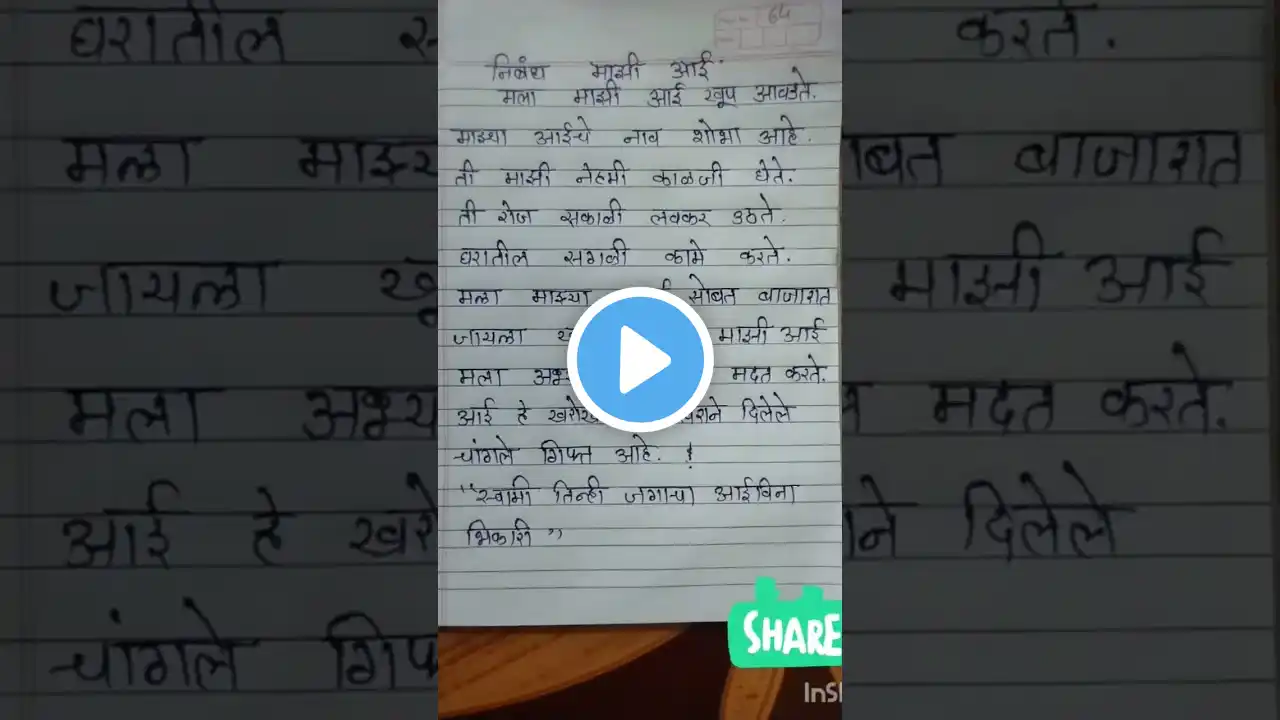 64
निबंध माझी आई.
मला माझी आई खूप आवडते.
माझ्या आईचे नाव शोभा आहे.
ती माझी नेहमी काळजी घेते.
ती रोज सकाळी लवकर उठते.
घरातील सगळी कामे करते.
मला माझ्या सोबत बाजारात
जायला माझी आई
मला मदत करते.
आई हे दिलेले
चांगले गिफ्त आहे. !
"स्वामी तिन्ही जगाचा आईविना
भिकारी"
SHARE
InSh